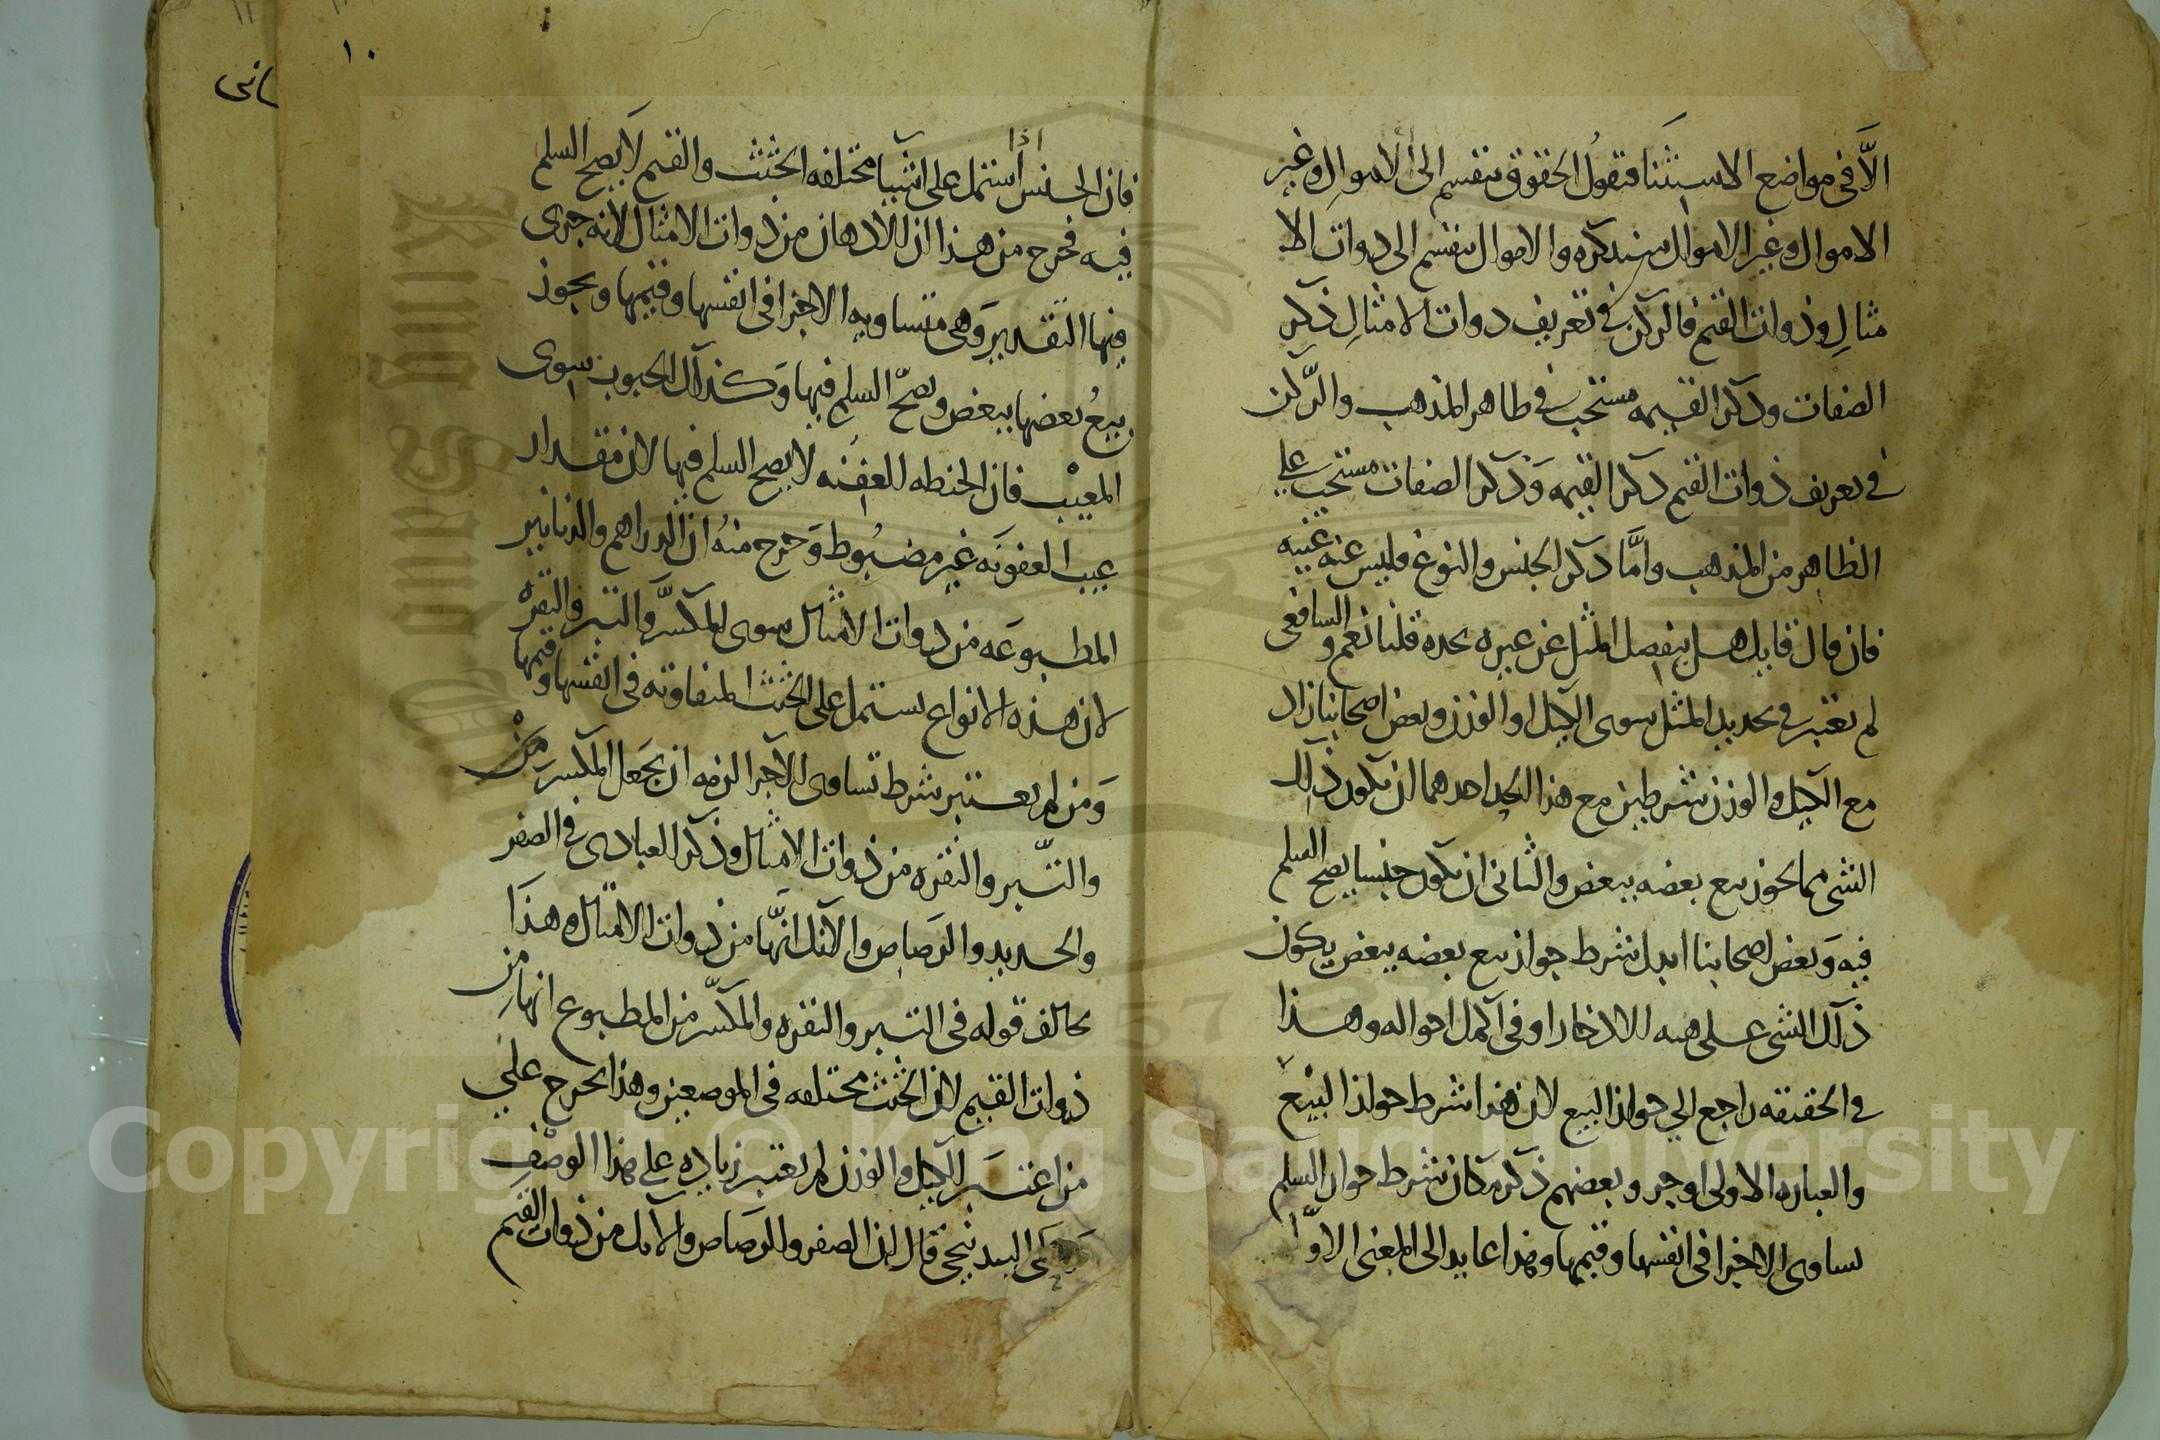 الَّا في مواضع الاستثنا فنقول الحقوق تنقسم الى الاموال وغير
الاموال وغير الاموال سنذكره والاموال تنقسم الى ذوات الا
مثال وذوات القيم فالركن في تعريف ذوات الامثال ذكر
الصفات وذكر القيمه مستحب في ظاهر المذهب والركن
في تعريف ذوات القيم ذكر القيمه وذكر الصفات مستحب على
الظاهر من المذهب وامَّا ذكر الجنس والنوع فليس عنه غنيه
فان قال قايل هل ينفصل المثل عن غيره بحده قلنا نعم والشافعي
لم يعتبر في تحديد المثل سوى الكيل او الوزن وبعض اصحابنا زاد
مع الكيل والوزن شرطين مع هذا الحد احدهما ان يكون ذلك
الشي مما يجوز بيع بعضه ببعض والثاني ان يكون جنسا يصح السلم
فيه وبعض اصحابنا ابدل شرط جواز بيع بعضه ببعض يكون
ذلك الشي على هيه الادخار او في اكمل احواله وهذا
في الحقيقه راجع الي جواز البيع لان هذا شرط جواز البيع
والعباره الاولى اوجز وبعضهم ذكر مكان شرط جواز السلم
تساوي الاجزا في انفسها وقيمها وهذا عايد الى المعنى الاول
١٠
فان الجنس اذا اشتمل على اشيا مختلفه الجثث والقيم لا يصح السلم
فيه فخرج من هذا ان الادهان من ذوات الامثال لانه جرى
فيها التقدير وهي متساويه الاجزا في انفسها وقيمها ويجوز
بيع بعضها ببعض ويصحّ السلم فيها وكذلك الحبوب سوى
المعيب فان الحنطه العفنه لا يصح السلم فيها لان مقدار
عيب العفونه غير مضبوط وخرج منه ان الدراهم والدنانير
المطبوعه من ذوات الامثال سوى المكسَّر والتبر والنقره
لان هذه الانواع تشتمل على الجثث المتفاوته في انفسها وقيمها
ومن لم يعتبر شرط تساوي الاجزا لزمه ان يجعل المكسر من
والتبر والنقره من ذوات الامثال وذكر العبادي في الصفر
والحديد والرصاص والآنك انّها من ذوات الامثال وهذا
يخالف قوله في التبر والنقره والمكسّر من المطبوع انها من
ذوات القيم لان الجثث مختلفه في الموضعين وهذا يخرج على
من اعتبر الكيل والوزن لم يعتبر زياده على هذا الوصف
البندنيجي قال ان الصفر والرصاص والآنك من ذوات القيم